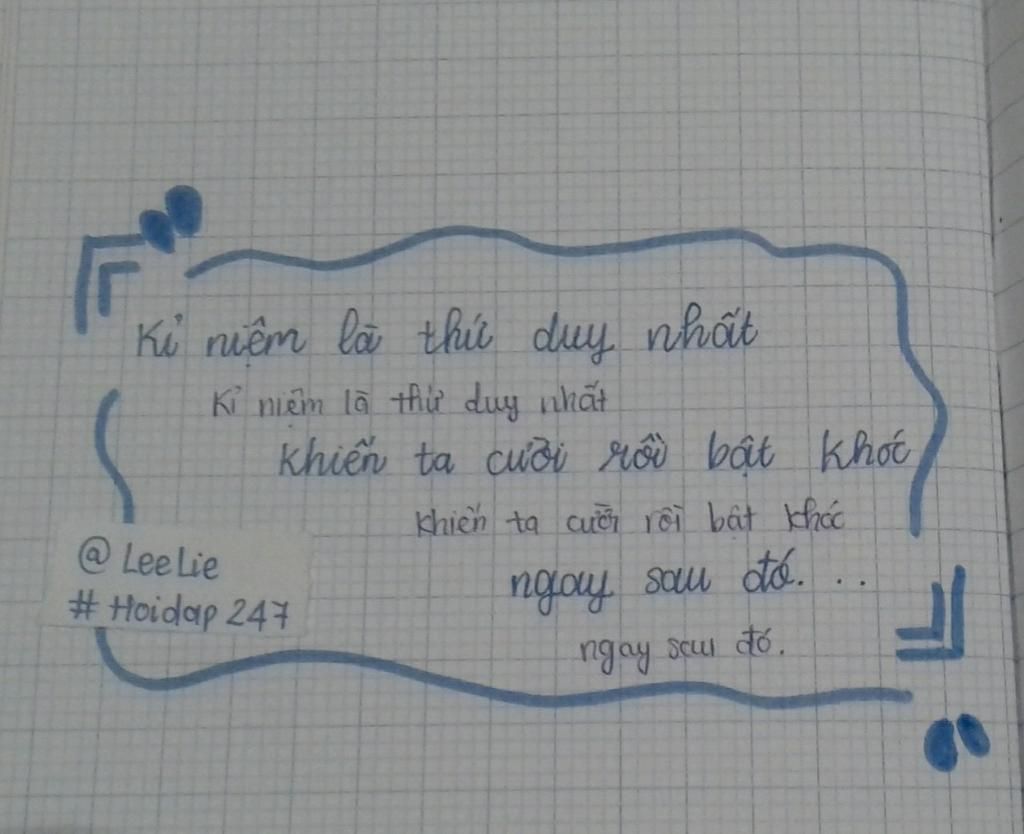 Kỉ niệm là thứ duy nhất
Kỉ niệm là thứ duy nhất
khiến ta cười rồi bật khóc
khiến ta cười rồi bật khóc
ngay sau đó. . .
ngay sau đó.
@LeeLie
#Hoidap247